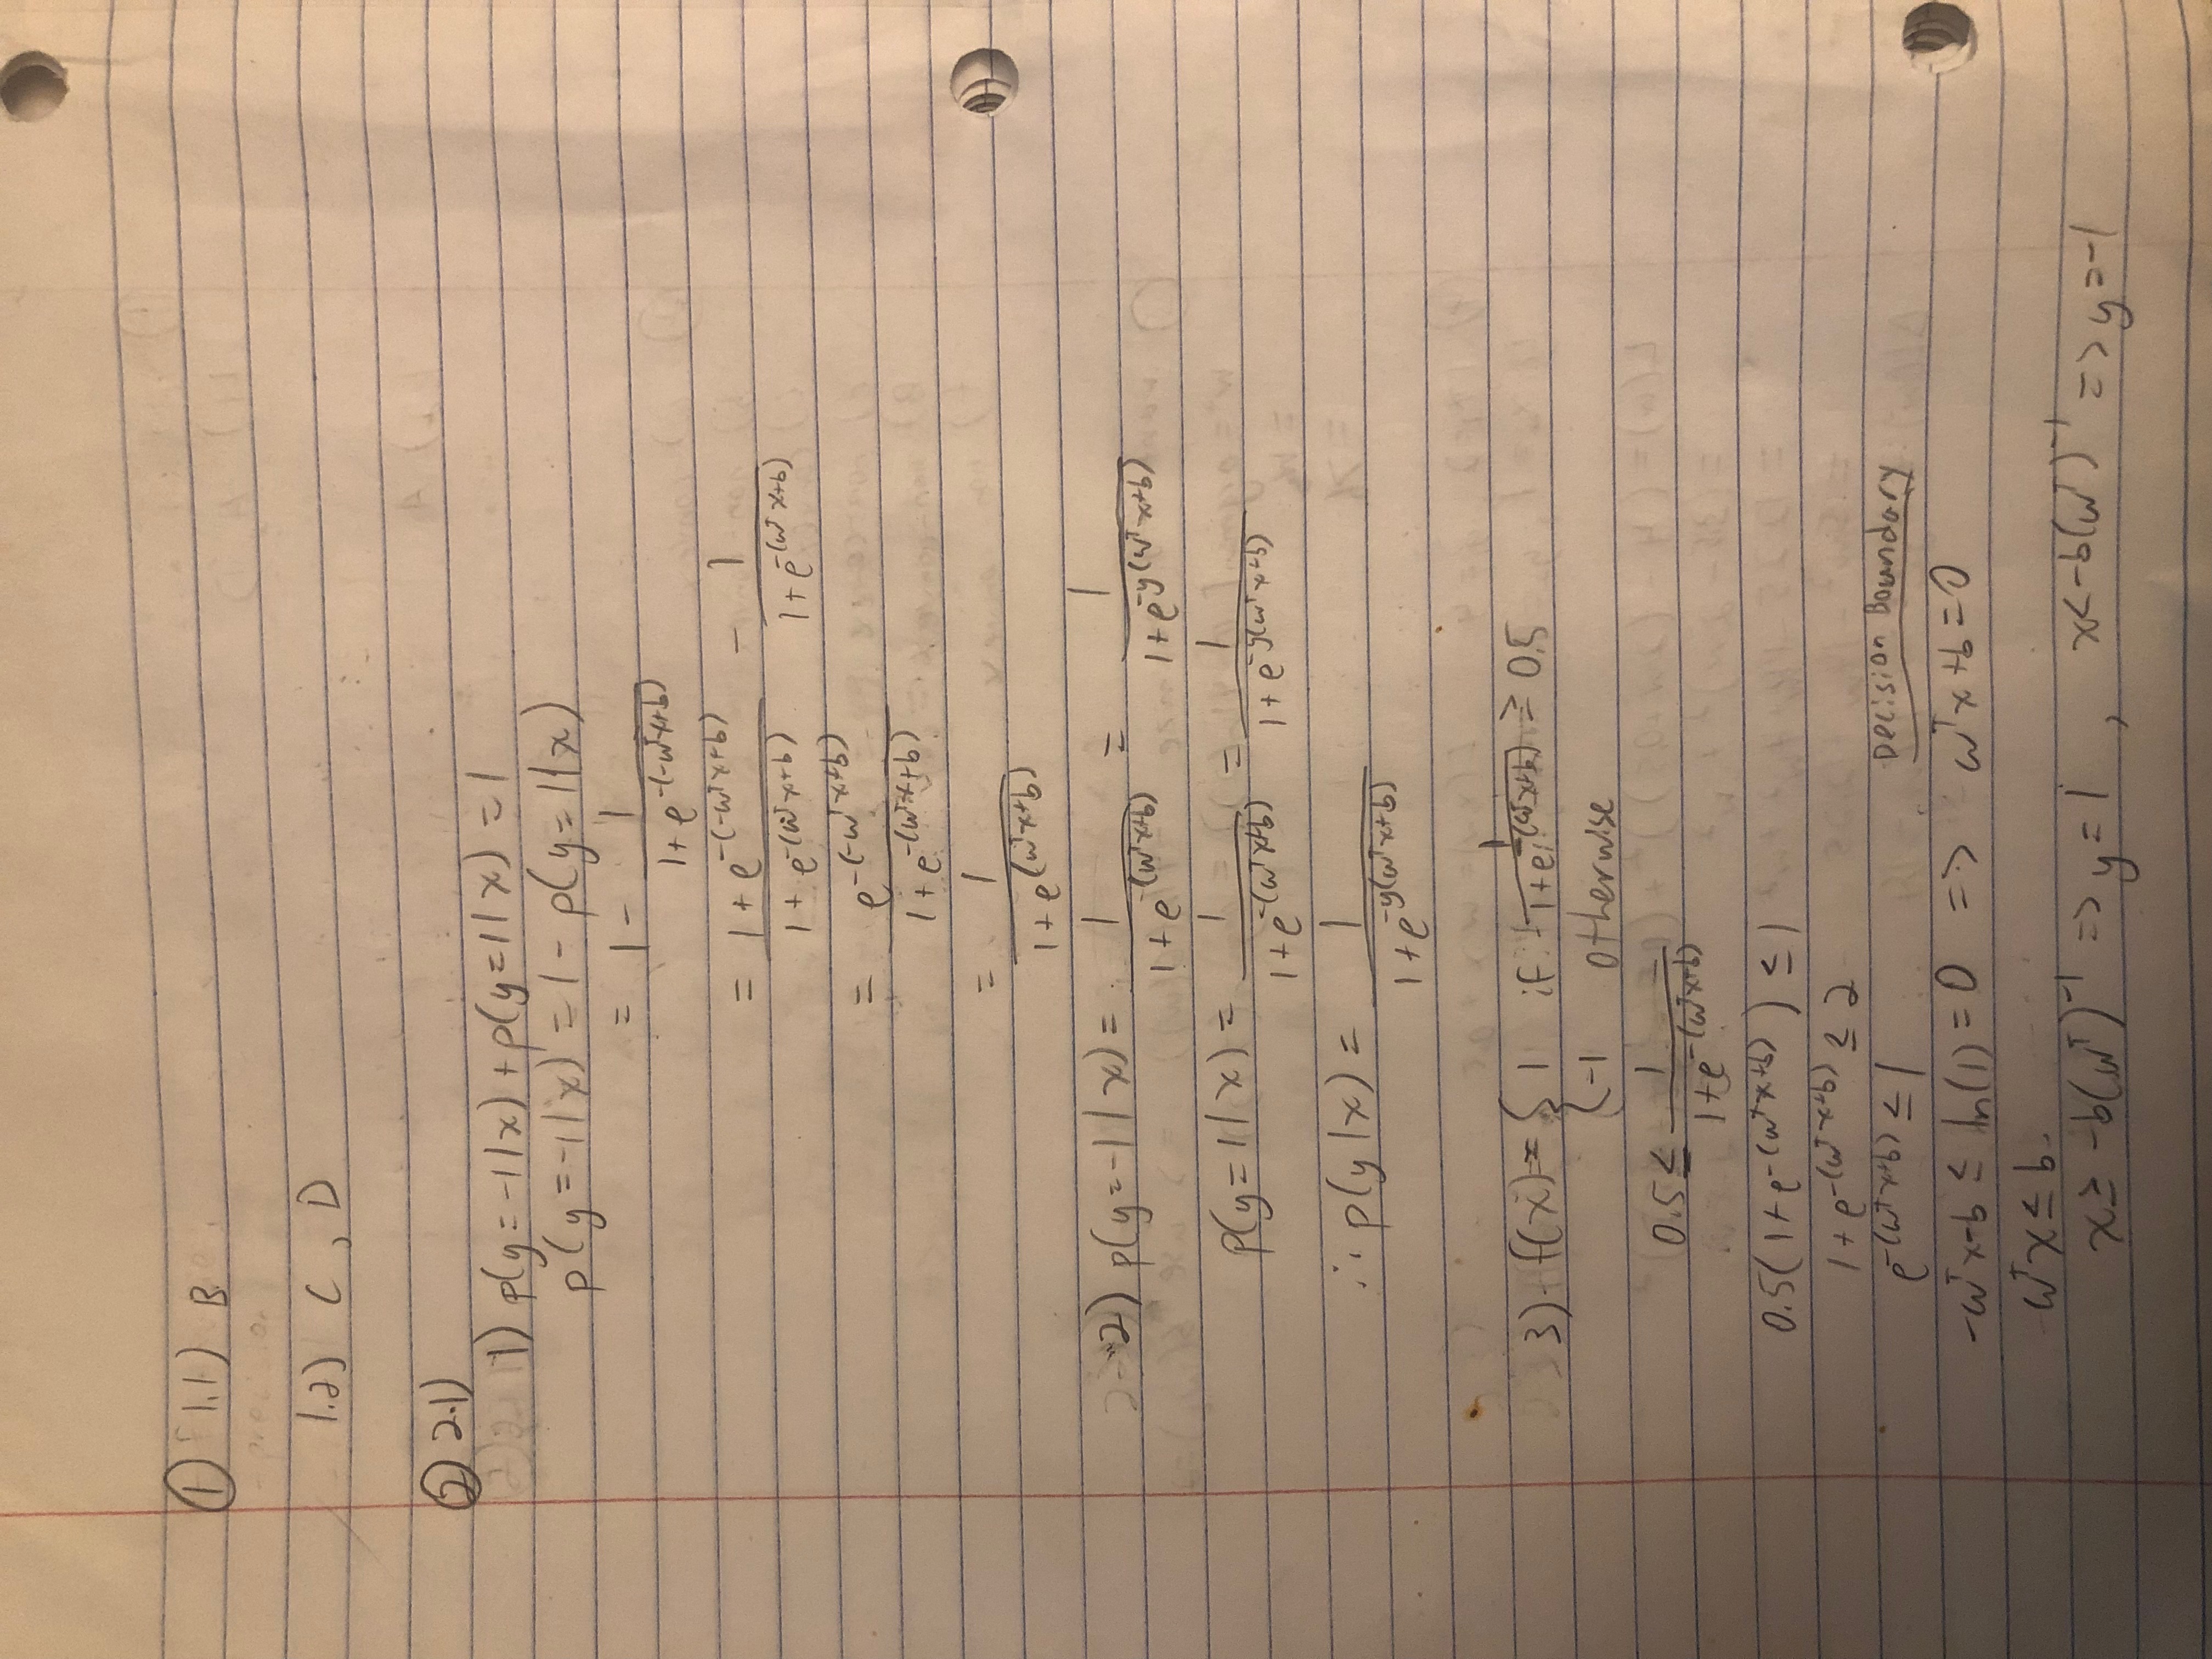 ① 1.1) B
1.2) C, D
② 2.1)
1) p(y=-1|x) + p(y=1|x) = 1
p(y=-1|x) = 1 - p(y=1|x)
= 1 - 1/(1+e^-(-wᵀx+b))
= (1+e^-(-wᵀx+b))/(1+e^-(wᵀx+b)) - 1/(1+e^-(wᵀx+b))
= e^-(-wᵀx+b)/(1+e^-(wᵀx+b))
= 1/(1+e^(wᵀx+b))
2) p(y=-1|x) = 1/(1+e^-(wᵀx+b)) = 1/(1+e^-y(wᵀx+b))
p(y=1|x) = 1/(1+e^-(wᵀx+b)) = 1/(1+e^-y(wᵀx+b))
∴ p(y|x) = 1/(1+e^-y(wᵀx+b))
3) f(x) = { 1 if 1/(1+e^-(wᵀx+b)) ≥ 0.5
{ -1 otherwise
0.5 ≤ 1/(1+e^-(wᵀx+b))
0.5(1+e^-(wᵀx+b)) ≤ 1
1+e^-(wᵀx+b) ≤ 2
e^-(wᵀx+b) ≤ 1
Decision Boundary
-wᵀx-b ≤ ln(1) = 0 => wᵀx+b=0
wᵀx ≤ b
x ≥ -b(wᵀ)^-1 => y=1, x<-b(wᵀ)^-1 => y=-1